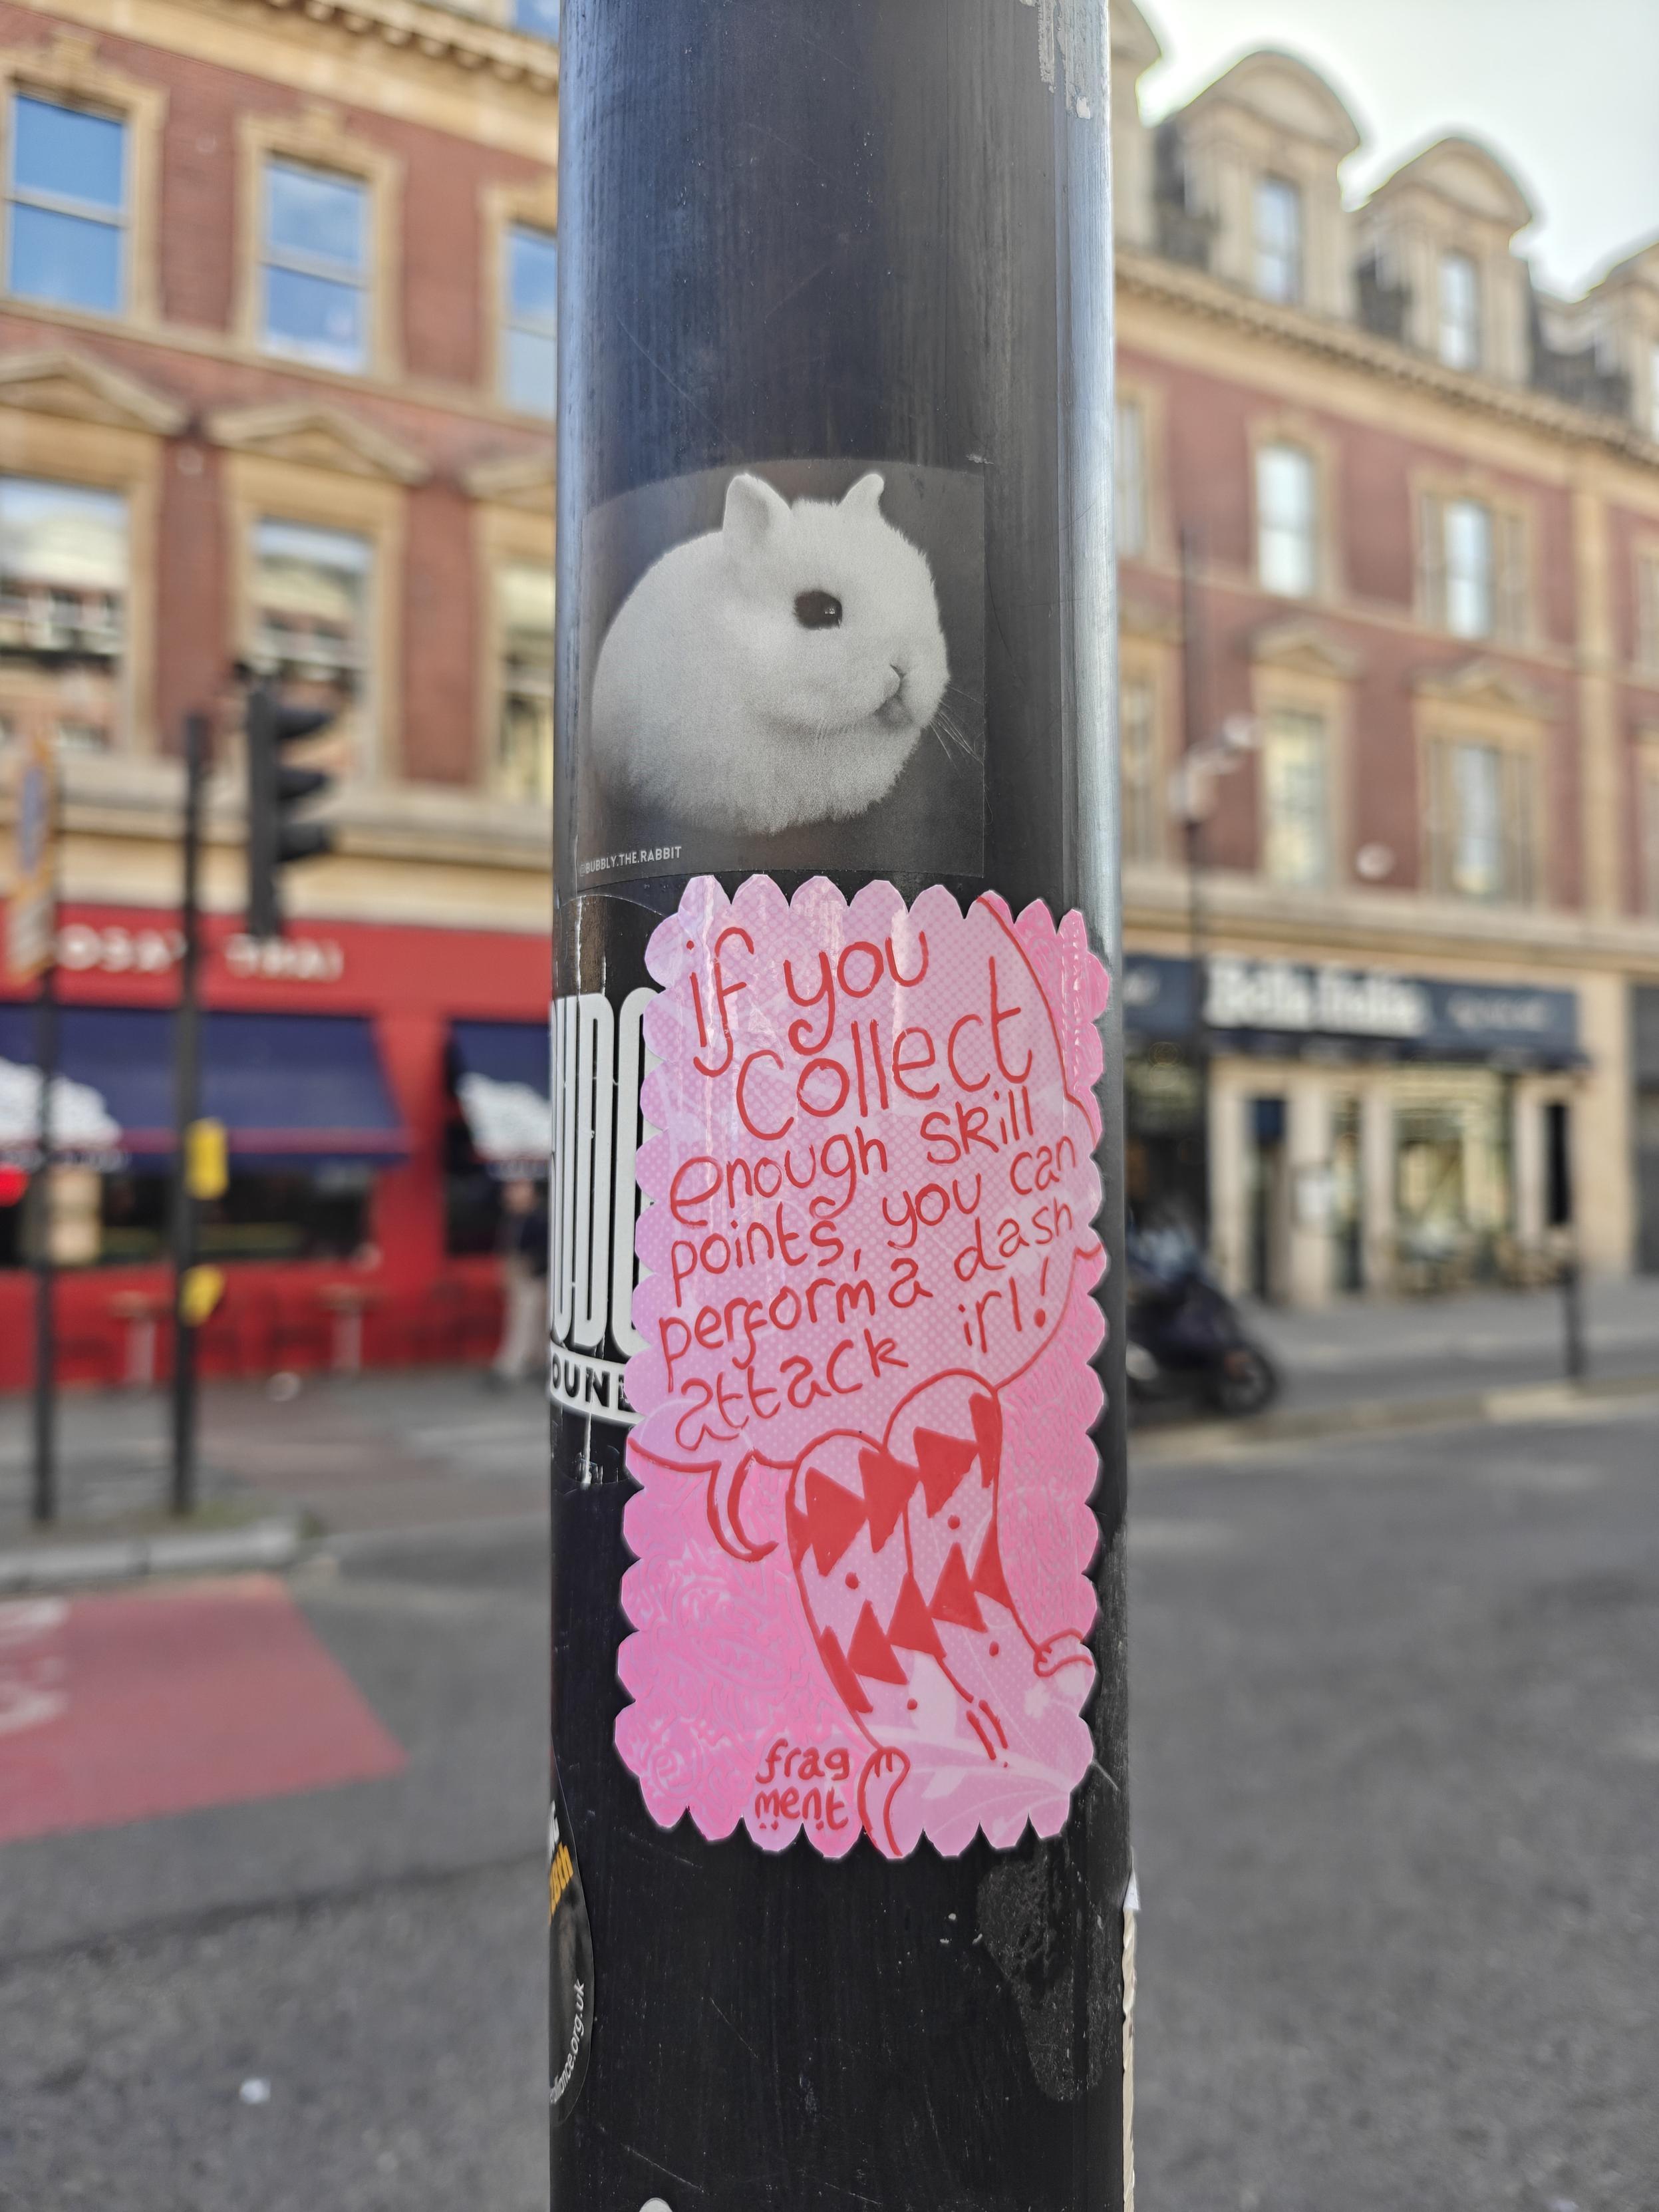 @BUBBLY.THE.RABBIT
if you
collect
enough skill
points, you can
perform a dash
attack irl!
frag
ment
OUN
THAI
Bella Italia
alliance.org.uk